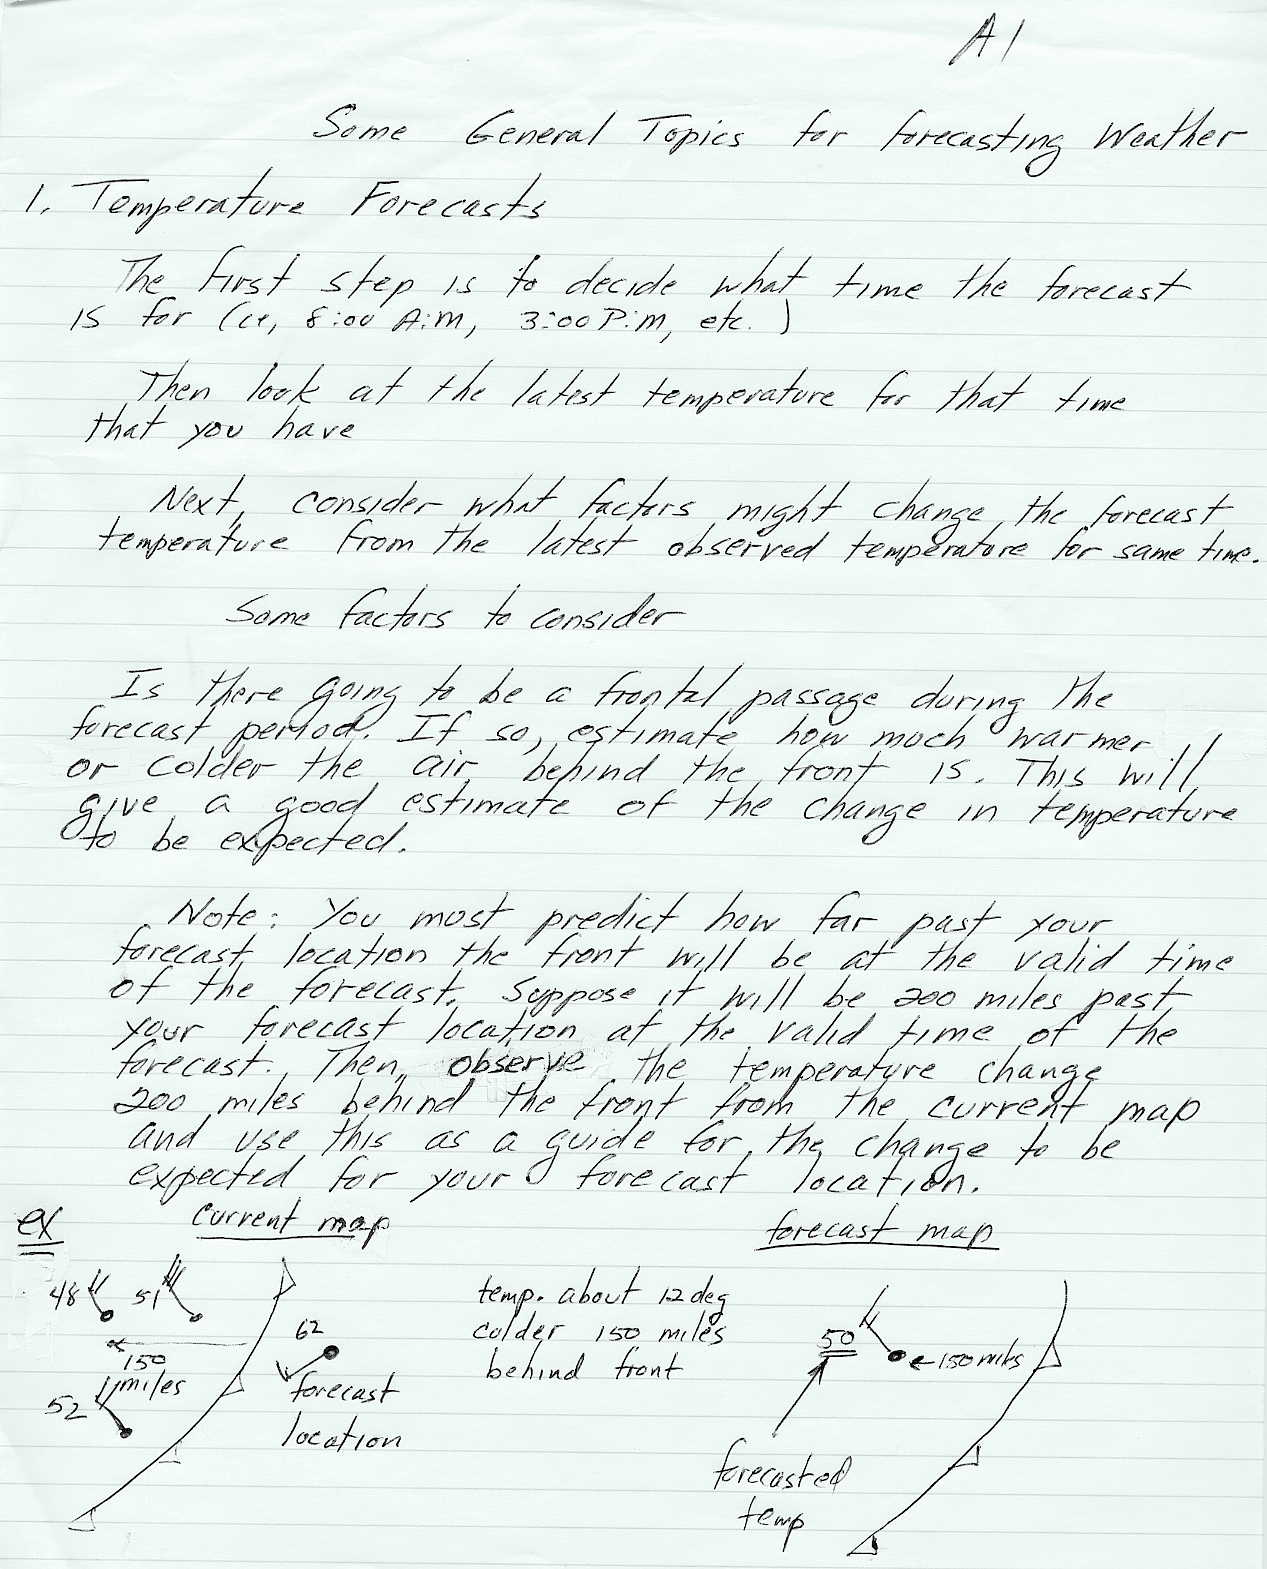 A1
Some General Topics for forecasting Weather
1. Temperature Forecasts
The first step is to decide what time the forecast
is for (ie, 8:00 A.M, 3:00 P.M, etc.)
Then look at the latest temperature for that time
that you have
Next, consider what factors might change the forecast
temperature from the latest observed temperature for same time.
Some factors to consider
Is there going to be a frontal passage during the
forecast period. If so, estimate how much warmer
or colder the air behind the front is. This will
give a good estimate of the change in temperature
to be expected.
Note: You must predict how far past your
forecast location the front will be at the valid time
of the forecast. Suppose it will be 200 miles past
your forecast location at the valid time of the
forecast. Then, observe the temperature change
200 miles behind the front from the current map
and use this as a guide for the change to be
expected for your forecast location.
ex
current map
48
51
62
150
miles
52
forecast
location
temp. about 12 deg
colder 150 miles
behind front
forecast map
50
150 miles
forecasted
temp